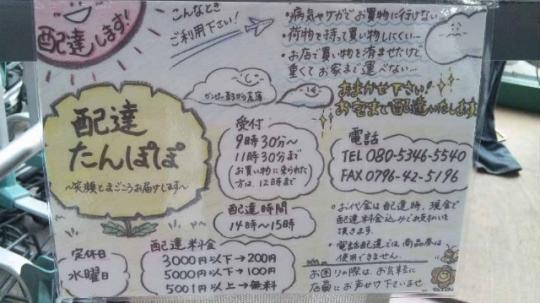 配達します!
こんなとき
ご利用下さい!
・病気やケガでお買物に行けない
・荷物を持って買い物しにくい…
・お店で買い物を済ませたけど
重くてお家まで運べない…
おまかせ下さい!
お宅まで配達いたします
配達
たんぽぽ
~笑顔とまごころお届けします~
受付
9時30分~
11時30分まで
お買い物に来られた
方は、12時まで
配達時間
14時~15時
電話
TEL 080-5346-5540
FAX 0796-42-5196
・お代金は配達時、現金で
配達料金込みでお支払いを
頂きます。
・電話配達では、商品券は
使用できません。
お困りの際は、お気軽に
店員にお声せ下さいませ
定休日
水曜日
配達料金
3000円以下→200円
5000円以下→100円
5001円以上→無料